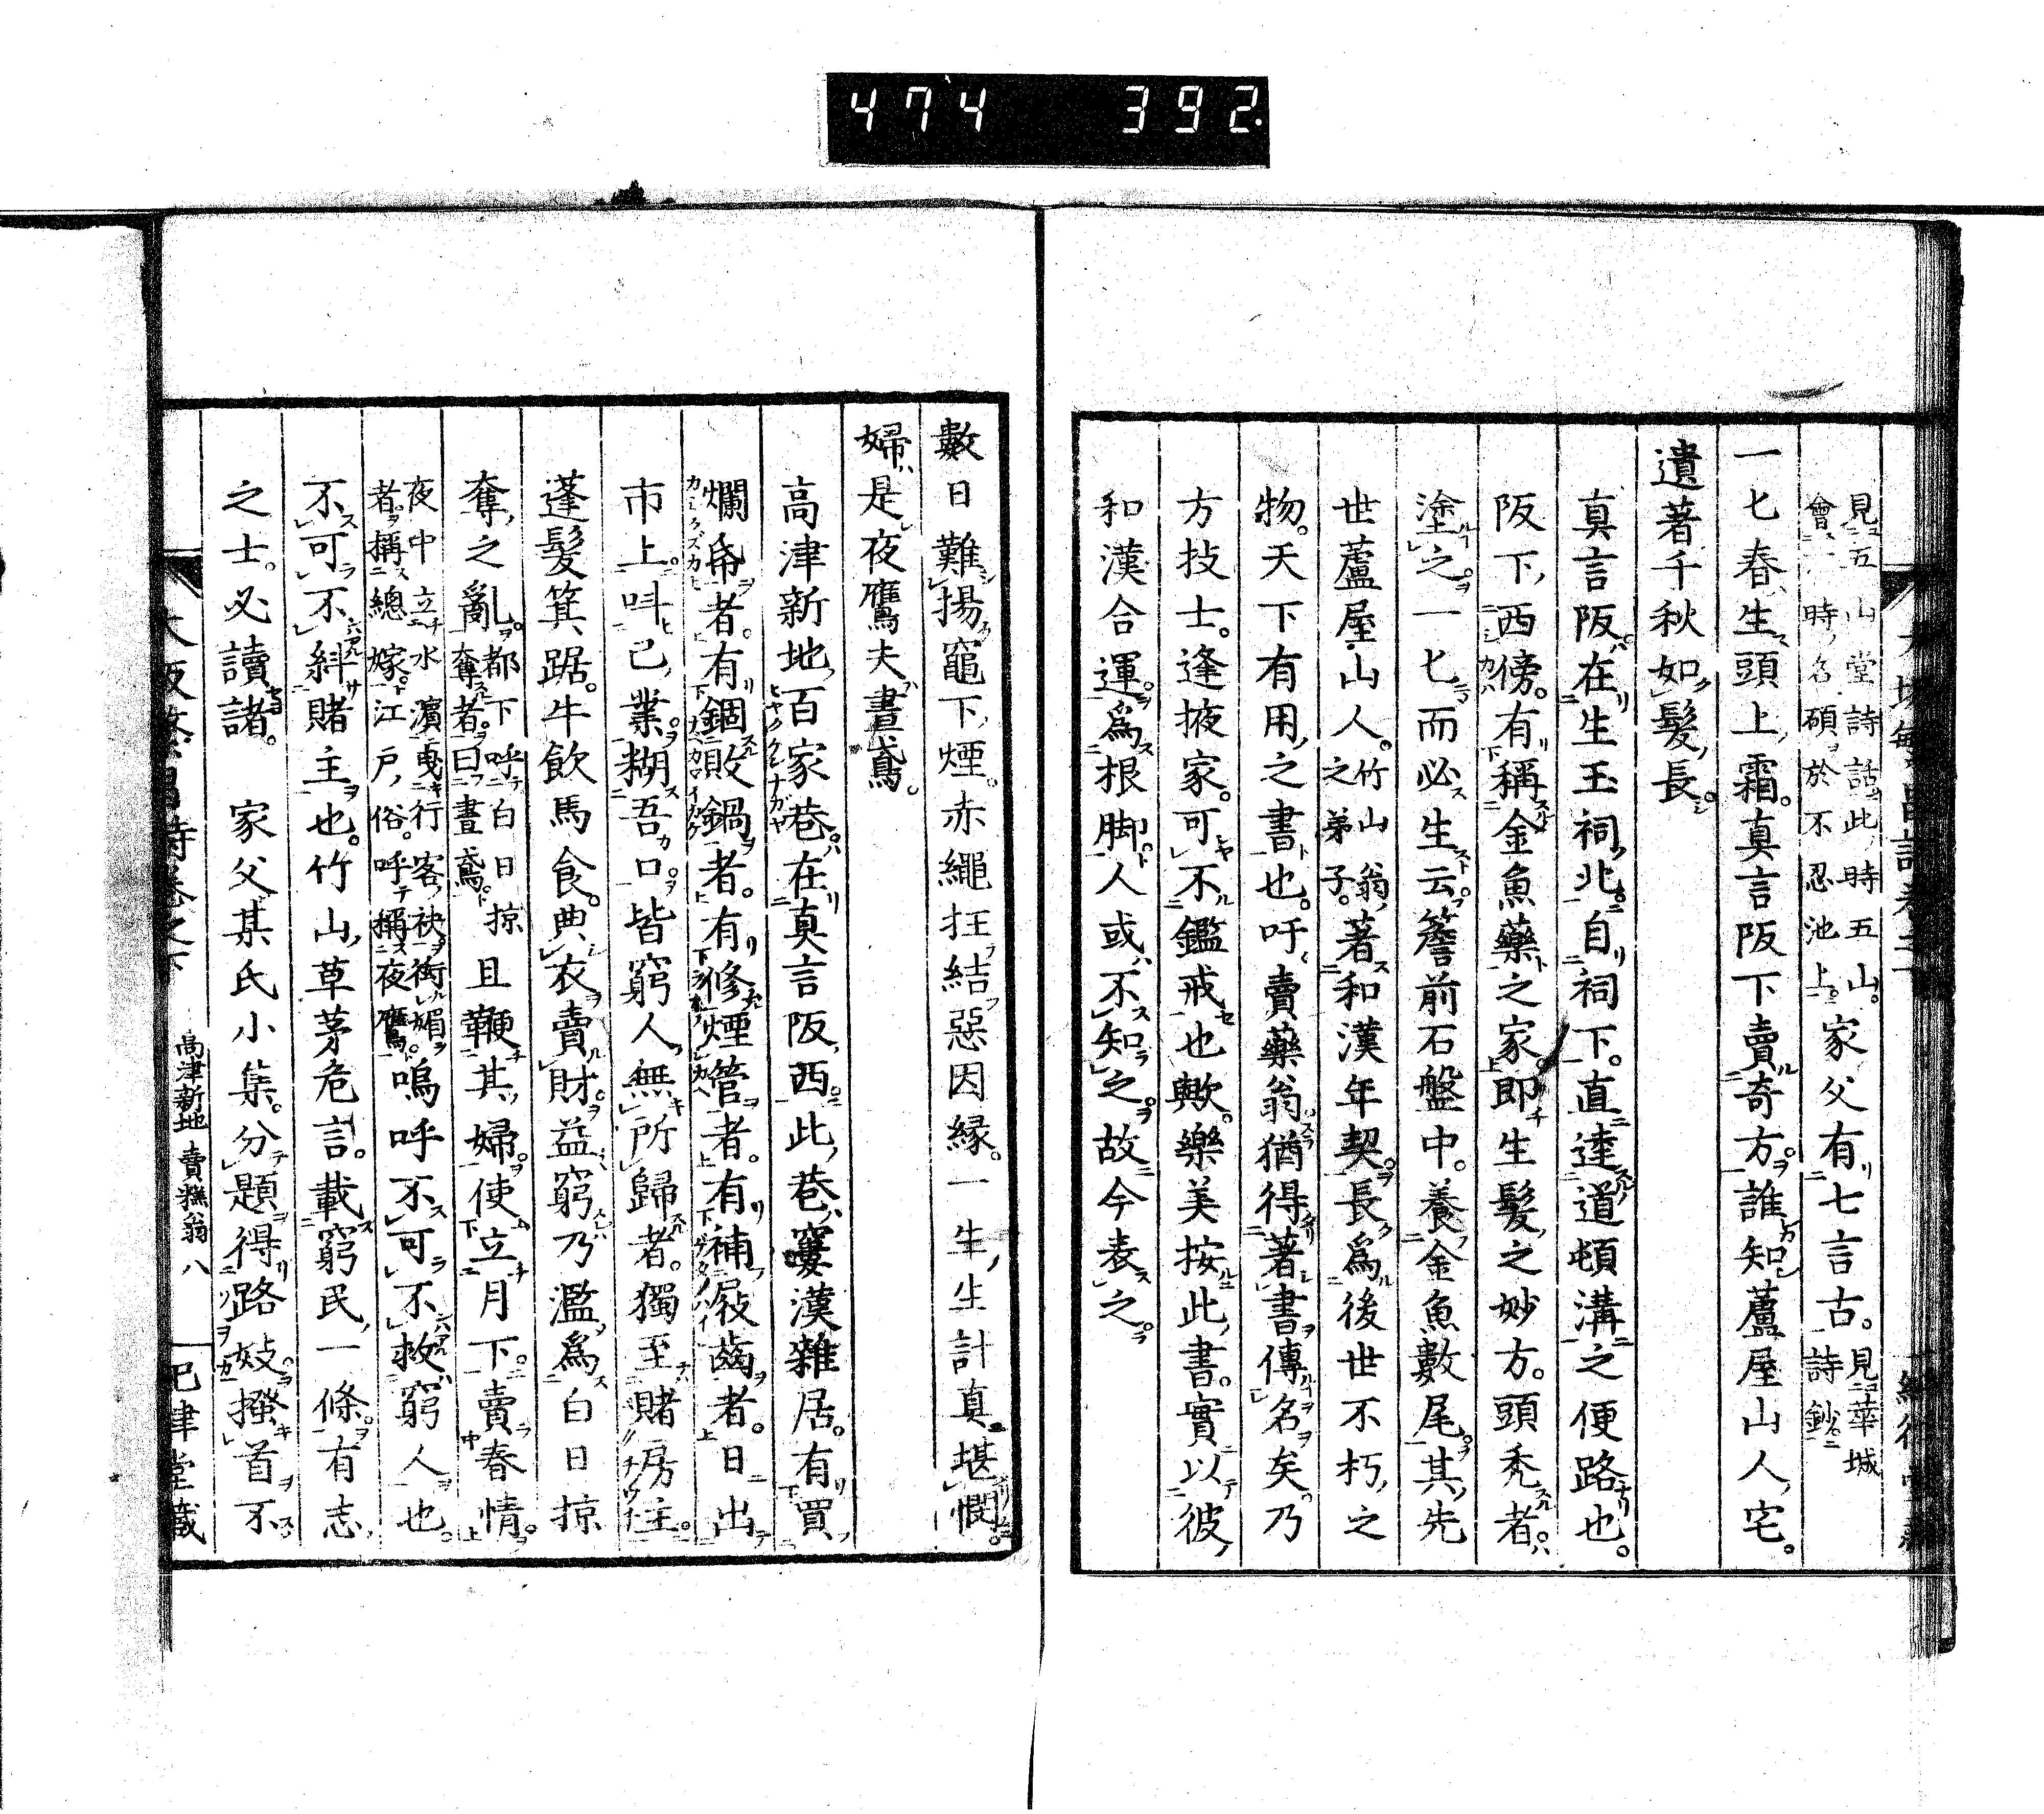 474 392
見五山堂詩話此時五山。家父有七言古。見華城
會一時名碩於不忍池上。詩鈔
一七春生頭上霜。真言阪下賣奇方。誰知蘆屋山人宅。
遺著千秋如髮長。
真言阪在生玉祠北。自祠下。直達道頓溝之便路也。
阪下西傍。有稱金魚藥之家。即生髮之妙方。頭禿者。
塗之。一七而必生云。簷前石盤中。養金魚數尾。其先
世蘆屋山人。竹山翁之弟子。著和漢年契。長爲後世不朽之
物。天下有用之書也。吁賣藥翁猶得著書傳名矣。乃
方技士。逢掖家。可不鑑戒也歟。樂美按此書。實以彼
和漢合運。爲根脚。人或不知之。故今表之。
數日難揚竈下煙。赤繩抂結惡因縁。一生生計真堪憫。
婦是夜鷹夫晝鳶。
高津新地百家巷。在真言阪西。此巷窶漢雜居。有買
爛帋者。有錮敗鍋者。有修煙管者。有補屐齒者。日出
市上。叫己業。糊吾口。皆窮人無所歸者。獨至賭房主。
蓬髮箕踞。牛飲馬食。典衣賣財。益窮乃濫。爲白日掠
奪之亂。都下呼白日掠奪者曰晝鳶。且鞭其婦。使立月下。賣春情。
夜中立水濱曳行客袂衒媚者。稱總嫁。江戸俗。呼稱夜鷹。嗚呼不可不救窮人也。
不可不糾賭主也。竹山草茅危言。載窮民一條。有志
之士。必讀諸。 家父某氏小集。分題得路妓。搔首不
大阪繁昌詩卷之下 高津新地 賣糕翁 八